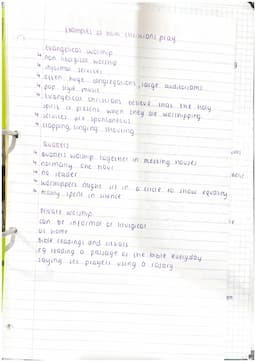 Examples of how christians pray
Evangelical worship
↳ non liturgical worship
↳ informal services
↳ often huge congregations, large auditoriums
↳ pop style music
↳ Evangelical christians believe that the holy
spirit is present when they are worshipping
↳ services are spontaneous
↳ clapping, singing, shouting
Quakers
↳ quakers worship together in meeting houses
↳ normally one hour
↳ no leader
↳ worshippers might sit in a circle to show equality
↳ mainly spent in silence
Private worship
can be informal or liturgical
at home
Bible readings and rituals
eg reading a passage of the bible everyday
saying set prayers using a rosary